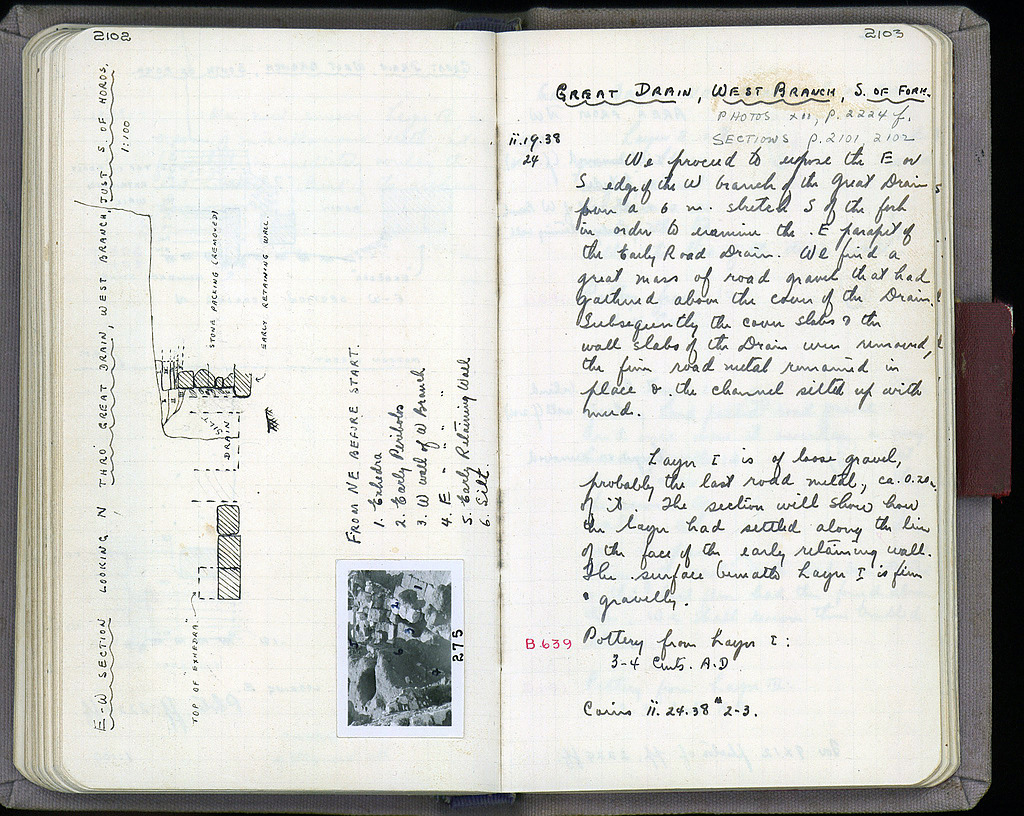 2102
E-W SECTION LOOKING N THRO GREAT DRAIN, WEST BRANCH, JUST S OF HOROS.
1:100
STONE PACKING (REMOVED)
EARLY RETAINING WALL.
SILT
DRAIN
TOP OF "EXHEDRA"
FROM NE BEFORE START.
1. Exhedra
2. Early Peribolos
3. W wall of W Branch
4. E " " " "
5. Early Retaining Wall
6. Silt
275
2103
GREAT DRAIN, WEST BRANCH, S. OF FORK.
PHOTOS XII, P. 2224 f.
SECTIONS P. 2101, 2102
ii.19.38
24
We proceed to expose the E or
S edge of the W branch of the Great Drain
from a 6 m. stretch S of the fork
in order to examine the E parapet of
the Early Road Drain. We find a
great mass of road gravel that had
gathered above the cover of the Drain.
Subsequently the cover slabs & the
wall slabs of the Drain were removed,
the firm road metal remained in
place & the channel silted up with
mud.
Layer I is of loose gravel,
probably the last road metal, ca. 0.20m.
of it. The section will show how
the layer had settled along the line
of the face of the early retaining wall.
The surface beneath Layer I is firm
& gravelly.
B.639
Pottery from Layer I:
3-4 Cents. A.D.
Coins ii.24.38 # 2-3.